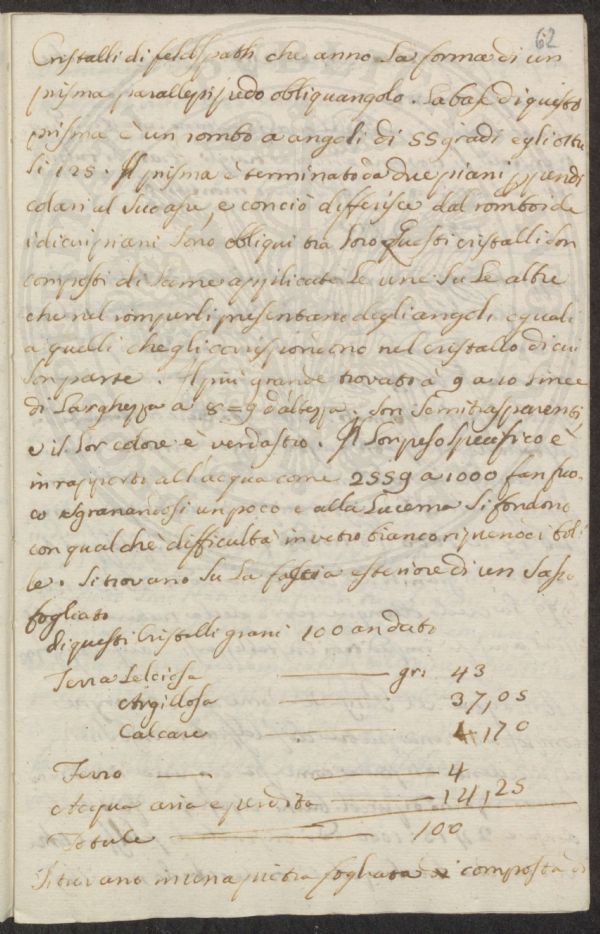 62
Cristalli di feldspath che anno La forma di un
prisma parallepipedo obliquangolo. La base di questo
prisma è un rombo a angoli di 55 gradi e gli ottu
si 125. Il prisma è terminato da due piani ppendi
colari al suo asse, e con ciò differisce dal romboide
i di cui piani sono obliqui tra loro Questi cristalli son
composti di Lame applicate Le une Su Le altre
che nel romperli presentano degli angoli eguali
a quelli che gli corrispondono nel cristallo di cui
son parte. Il più grande trovato à 9 a 10 Linee
di Larghezza a 8=9 d'altezza. Son Semitrasparenti,
e il Lor colore è verdastro. Il Lor peso specifico è
in rapporto all'acqua come 2559 a 1000 fan fuo-
co sgranandosi un poco e alla Lucerna Si fondono
con qualche difficultà in vetro bianco ripieno di bol
le. Si trovano Su La faccia esteriore di un Sasso
fogliato
di questi Cristalli grani 100 an dato
Terra Selciosa gr: 43
Argillosa 37,05
Calcare 1,70
Ferro 4
Acqua aria e perdita 14,25
Totale 100
Si trovano in una pietra fogliata composta di